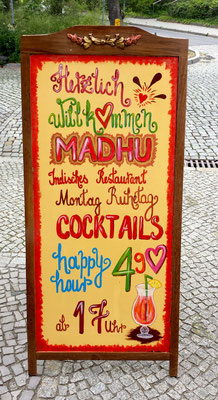 Herzlich
Willkommen
MADHU
Indisches Restaurant
Montag Ruhetag
COCKTAILS
happy
hour
490
ab 17 Uhr